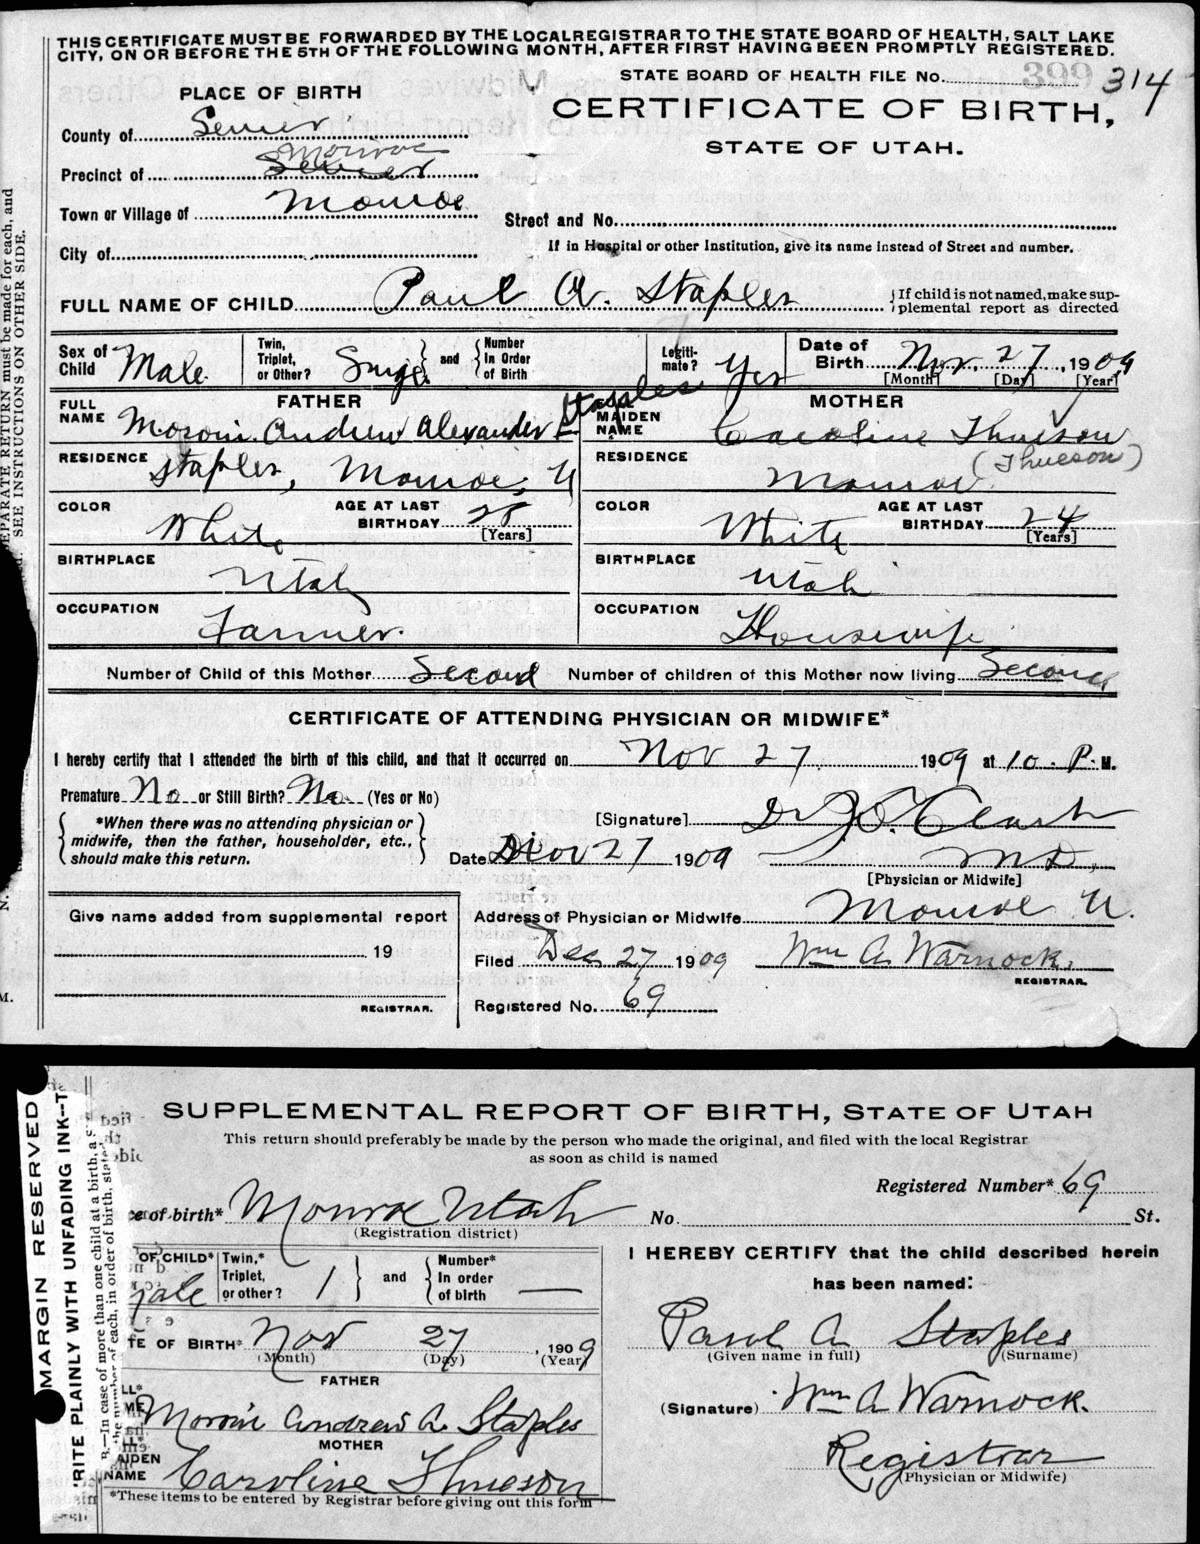 THIS CERTIFICATE MUST BE FORWARDED BY THE LOCAL REGISTRAR TO THE STATE BOARD OF HEALTH, SALT LAKE
CITY, ON OR BEFORE THE 5TH OF THE FOLLOWING MONTH, AFTER FIRST HAVING BEEN PROMPTLY REGISTERED.
STATE BOARD OF HEALTH FILE No. 399 314
PLACE OF BIRTH
CERTIFICATE OF BIRTH,
STATE OF UTAH.
County of Sevier
Monroe
Precinct of Sevier
Town or Village of Monroe
Street and No.
City of
If in Hospital or other Institution, give its name instead of Street and number.
FULL NAME OF CHILD Paul A. Staples
If child is not named, make sup-
plemental report as directed
Sex of Child Male
Twin, Triplet, or Other? Single and Number In Order of Birth
Legiti-mate? Yes
Date of Birth Nov. 27, 1909
[Month] [Day] [Year]
FATHER
MOTHER
FULL NAME Moroni Andrew Alexander Staples
MAIDEN NAME Caroline Thueson
(Thueson)
RESIDENCE Staples, Monroe, U
RESIDENCE Monroe
COLOR White AGE AT LAST BIRTHDAY 28 [Years]
COLOR White AGE AT LAST BIRTHDAY 24 [Years]
BIRTHPLACE Utah
BIRTHPLACE Utah
OCCUPATION Farmer.
OCCUPATION Housewife
Number of Child of this Mother Second Number of children of this Mother now living Second
CERTIFICATE OF ATTENDING PHYSICIAN OR MIDWIFE*
I hereby certify that I attended the birth of this child, and that it occurred on Nov 27 1909 at 10. P. M.
Premature No or Still Birth? No (Yes or No)
*When there was no attending physician or
midwife, then the father, householder, etc.,
should make this return.
[Signature] Dr
Date Nov 27 1909 M.D.
[Physician or Midwife]
Give name added from supplemental report
19
REGISTRAR.
Address of Physician or Midwife Monroe U.
Filed Dec 27 1909 Wm A. Warnock.
REGISTRAR.
Registered No. 69
EPARATE RETURN must be made for each, and
SEE INSTRUCTIONS ON OTHER SIDE.
SUPPLEMENTAL REPORT OF BIRTH, STATE OF UTAH
This return should preferably be made by the person who made the original, and filed with the local Registrar
as soon as child is named
Registered Number* 69
ce of birth* Monroe Utah No. St.
(Registration district)
OF CHILD* Male
Twin,* Triplet, or other? 1 and Number* In order of birth —
TE OF BIRTH* Nov 27, 1909
(Month) (Day) (Year)
FATHER
LL* ME Moroni Andrew A. Staples
MOTHER
LL* AIDEN NAME Caroline Thueson
*These items to be entered by Registrar before giving out this form
I HEREBY CERTIFY that the child described herein
has been named:
Paul A Staples
(Given name in full) (Surname)
(Signature) Wm A Warnock.
Registrar
(Physician or Midwife)
MARGIN RESERVED
RITE PLAINLY WITH UNFADING INK—T
B.—In case of more than one child at a birth, a s
the number of each, in order of birth, state